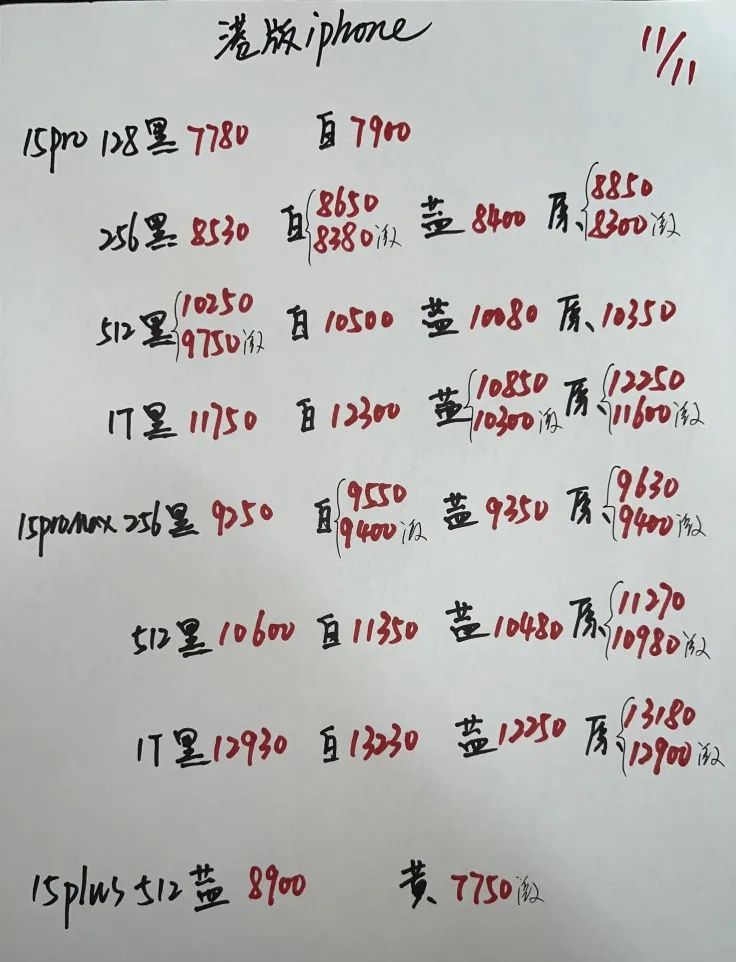 港版iphone
11/11
15pro 128黑 7780 白 7900
256黑 8530 白 8650 8380激 蓝 8400 原、 8850 8300激
512黑 10250 9750激 白 10500 蓝 10080 原、 10350
1T黑 11750 白 12300 蓝 10850 10300激 原、 12250 11600激
15promax 256黑 9250 白 9550 9400激 蓝 9350 原、 9630 9400激
512黑 10600 白 11350 蓝 10480 原、 11270 10980激
1T黑 12930 白 13230 蓝 12250 原、 13180 12900激
15plus 512蓝 8900 黄 7750激